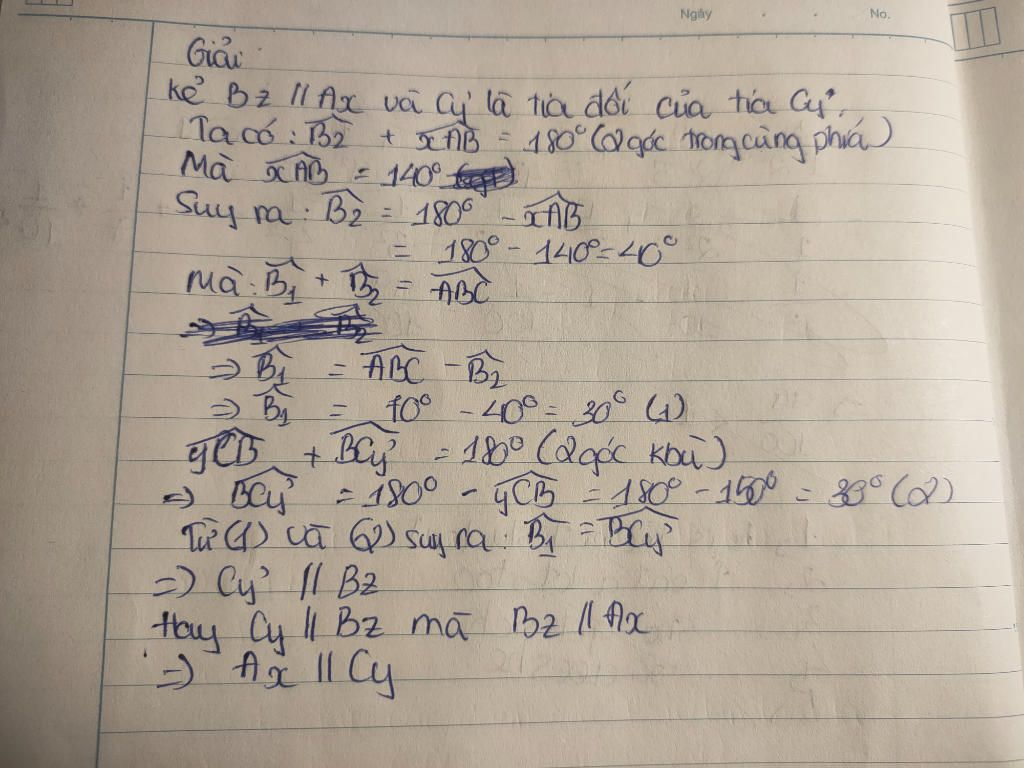 Ngày . . No.
Giải:
Kẻ Bz // Ax và Cy' là tia đối của tia Cy'.
Ta có: B̂2 + x̂AB = 180° (2 góc trong cùng phía)
Mà x̂AB = 140°
Suy ra: B̂2 = 180° - x̂AB
= 180° - 140° = 40°
Mà: B̂1 + B̂2 = ÂBC
=> B̂1 = ÂBC - B̂2
=> B̂1 = 70° - 40° = 30° (1)
ŷCB + B̂Cy' = 180° (2 góc kbù)
=> B̂Cy' = 180° - ŷCB = 180° - 150° = 30° (2)
Từ (1) và (2) suy ra: B̂1 = B̂Cy'
=> Cy' // Bz
Hay Cy // Bz mà Bz // Ax
=> Ax // Cy